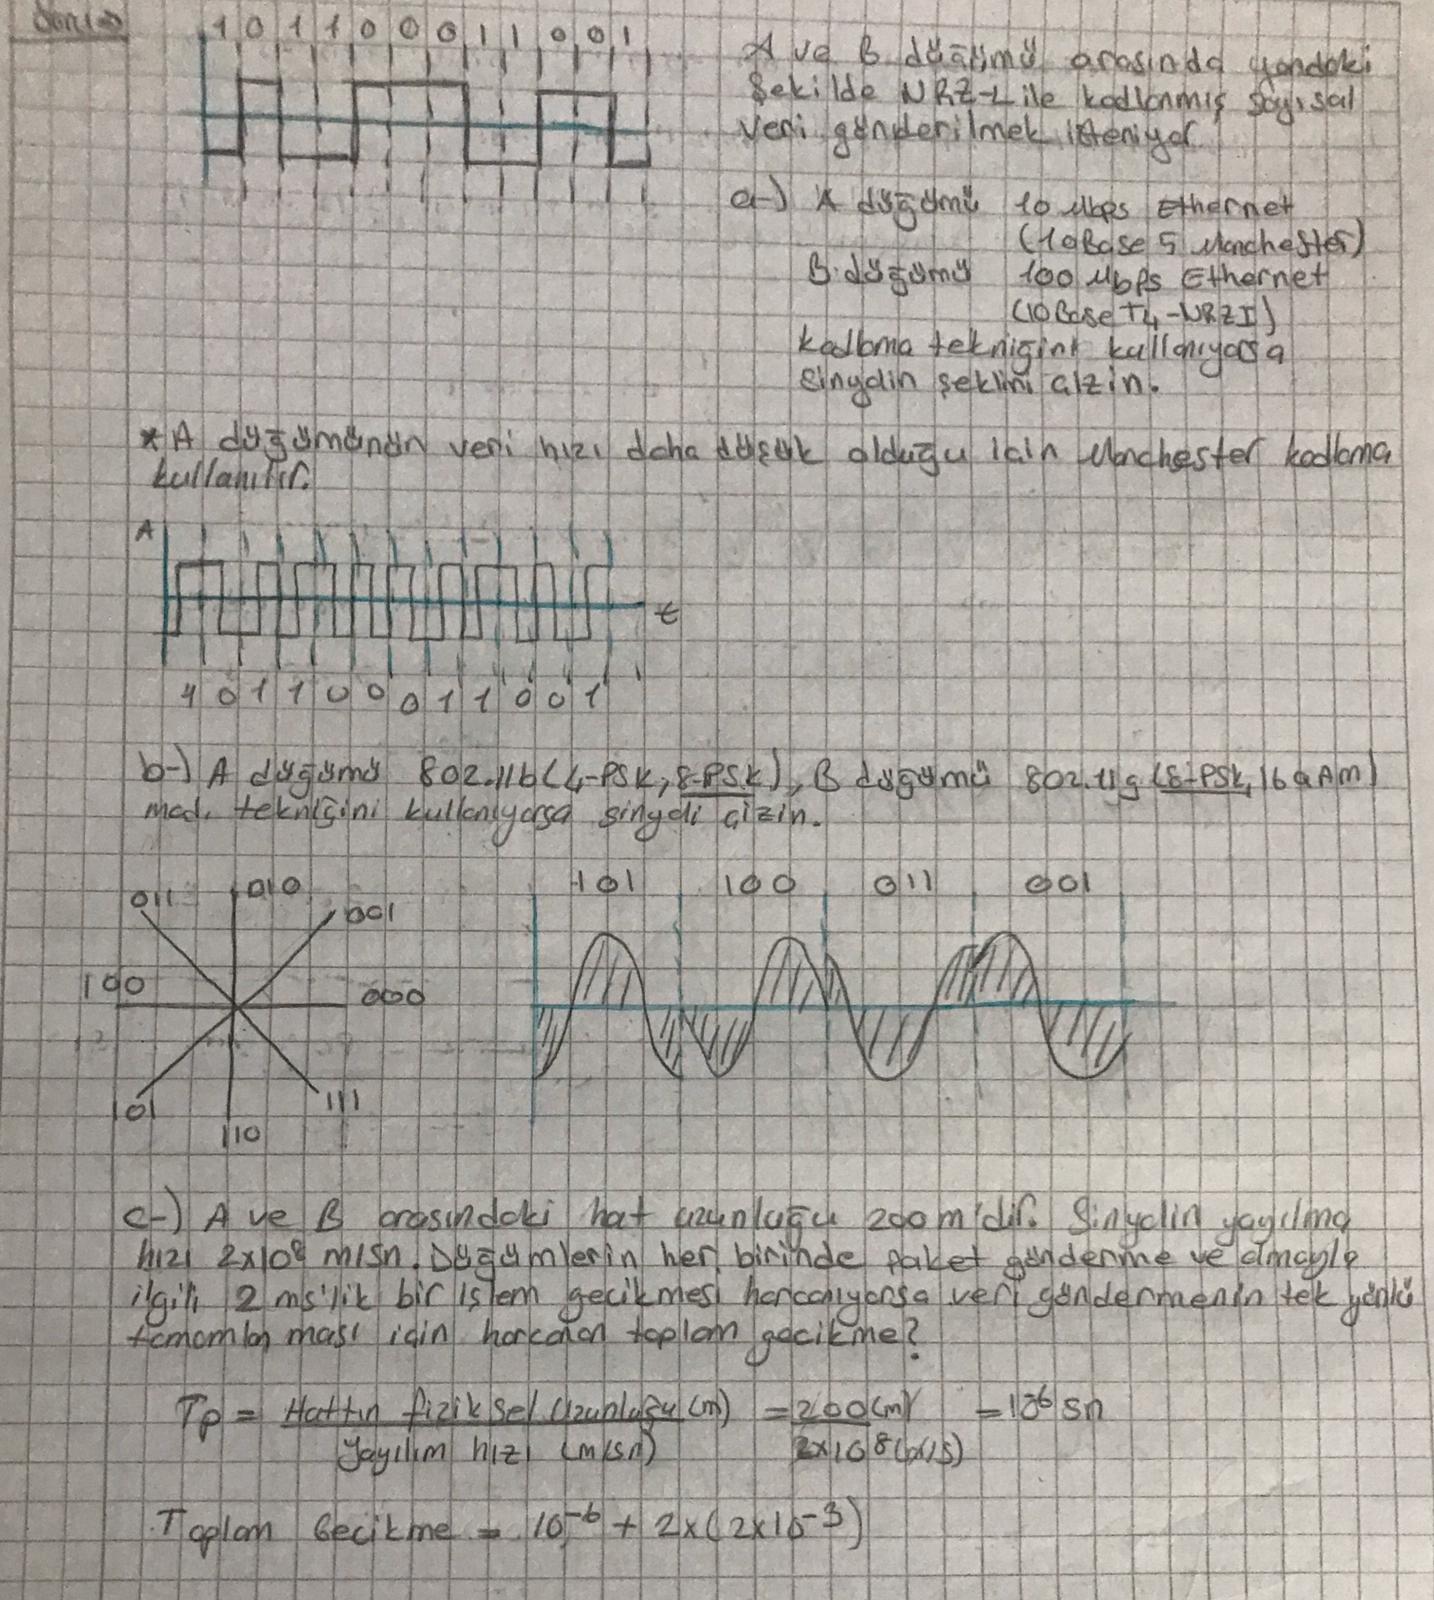 Soru⇒
1 0 1 1 0 0 0 1 1 0 0 1
A ve B düğümü arasında yandaki
şekilde NRZ-L ile kodlanmış sayısal
veri gönderilmek isteniyor.
a-) A düğümü 10 Mbps Ethernet
(10Base 5 Manchester)
B düğümü 100 Mbps Ethernet
(10BaseT4-NRZI)
kodlama tekniğini kullanıyorsa
sinyalin şeklini çizin.
*A düğümünün veri hızı daha düşük olduğu için Manchester kodlama
kullanılır.
A
t
1 0 1 1 0 0 0 1 1 0 0 1
b-) A düğümü 802.11b (4-PSK, 8-PSK), B düğümü 802.11g (8-PSK, 16 QAM)
mod. tekniğini kullanıyorsa sinyali çizin.
101 100 011 001
011 010 001
100 000
101 110 111
c-) A ve B arasındaki hat uzunluğu 200 m'dir. Sinyalin yayılma
hızı 2x10⁸ m/sn. Düğümlerin her birinde paket gönderme ve almayla
ilgili 2 ms'lik bir işlem gecikmesi harcanıyorsa veri göndermenin tek yönlü
tamamlanması için harcanan toplam gecikme?
Tp = Hattın fiziksel Uzunluğu (m) / Yayılım hızı (m/sn) = 200(m) / 2x10⁸(m/s) = 10⁻⁶ sn
Toplam Gecikme = 10⁻⁶ + 2x(2x10⁻³)